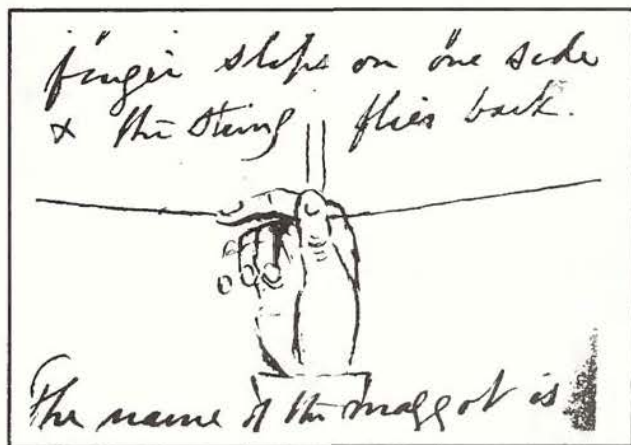 finger slips on one side
& the string flies back.
The name of the maggot is